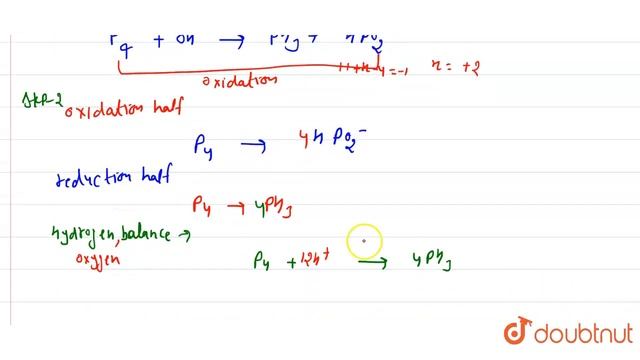 P4 + OH → PH3 + HPO2
oxidation
1 + x - 4 = -1 x = +2
Step-2
oxidation half
P4 → 4H PO2-
reduction half
P4 → 4PH3
hydrogen, balance →
oxygen
P4 + 12H+ → 4PH3
doubtnut